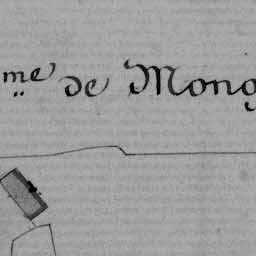 me de Mong